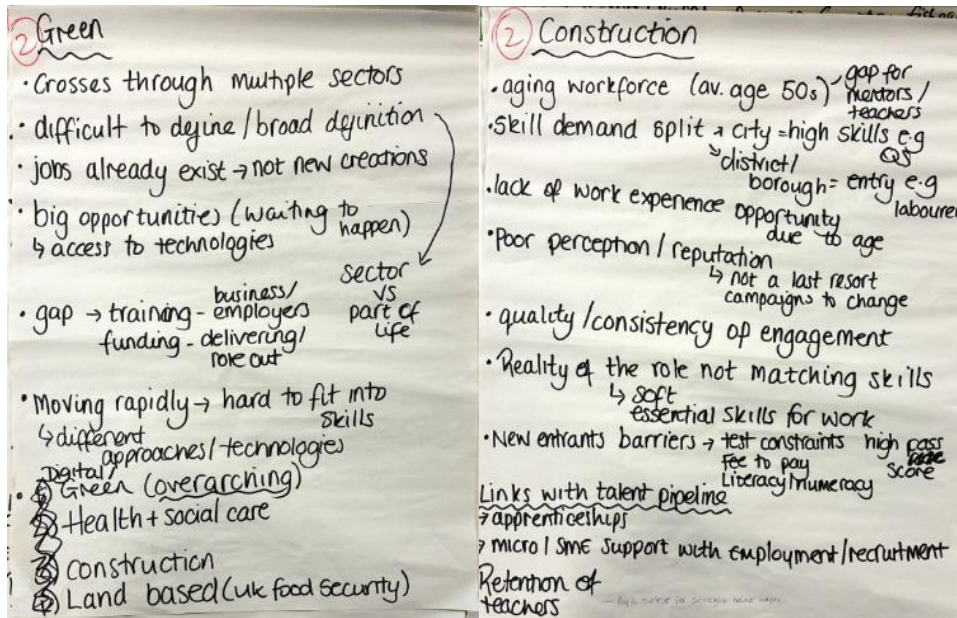 2 Green
• Crosses through multiple sectors
• difficult to define / broad definition
• jobs already exist → not new creations
• big opportunities (waiting to happen)
↳ access to technologies
sector
vs
part of
life
• gap → training - business/
employers
funding - delivering/
role out
• Moving rapidly → hard to fit into
skills
↳ different
approaches/technologies
Digital/
• Green (overarching)
Health + social care
construction
Land based (uk food security)
2 Construction
• aging workforce (av. age 50s) gap for
mentors /
teachers
• Skill demand split → city = high skills e.g
QS
district/
borough = entry e.g
labourer
• lack of work experience opportunity
due to age
• Poor perception / reputation
↳ not a last resort
campaigns to change
• quality / consistency of engagement
• Reality of the role not matching skills
↳ soft
essential skills for work
• New entrants barriers → test constraints high pass
score
Fee to pay
Literacy/numeracy
Links with talent pipeline
→ apprenticeships
→ micro / SME support with employment/recruitment
Retention of
teachers